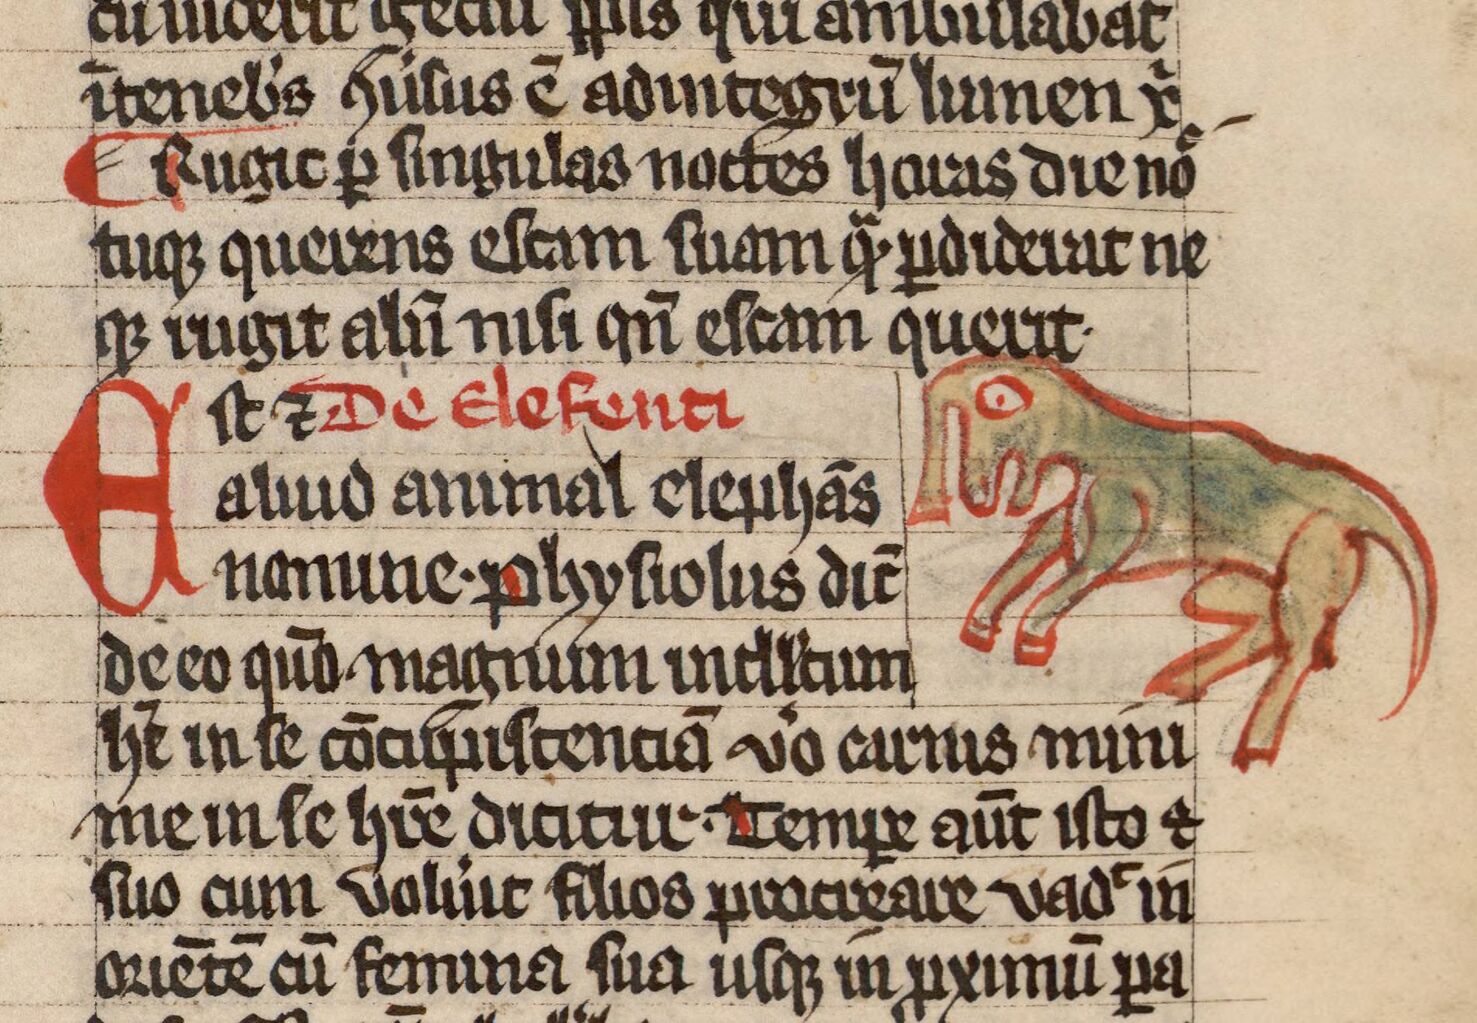 cu iucerit igctu ppłs qui ambulabat
ītenebˀs hͥ usus ē ad integrū lumen xͥ
Rugit ꝑ singulas noctes horas die noͨ
tuqꝫ querens escam suam qͣ ꝑdiderat ne
qꝫ rugit aliū nisi qn̄ escam querit.
Est ⁊ De Elefenti
aliud animal elephās
nomine. physiolus dic̄
de eo quō magnum intłłctum
ht̄ in se cōcupiscenciā vͦo carnis mini
me in se hr̄e dicitur. Tempore aūt isto ⁊
suo cum voluͥt filios procreare vadͭ in
oriētē cū femina sua usqꝫ in ꝓximū pa